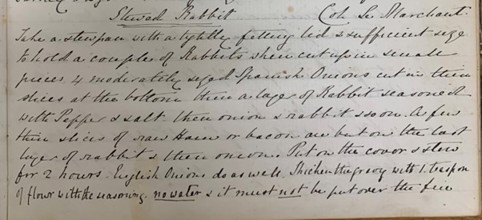 Stewed Rabbit Col. Le Marchant.
Take a stewpan with a tightly fitting lid & sufficient size
to hold a couple of Rabbits then cut up in small
pieces. 4 moderately sized Spanish Onions cut in thin
slices at the bottom then a layer of Rabbit seasoned
with Pepper & salt. then onion & rabbit & so on. A few
thin slices of raw Ham or bacon are put on the last
layer of rabbit & then onion. Put on the cover & stew
for 2 hours. English Onions do as well. Thicken the gravy with 1 teaspon
of flour with the seasoning. no water & it must not be put over the fire